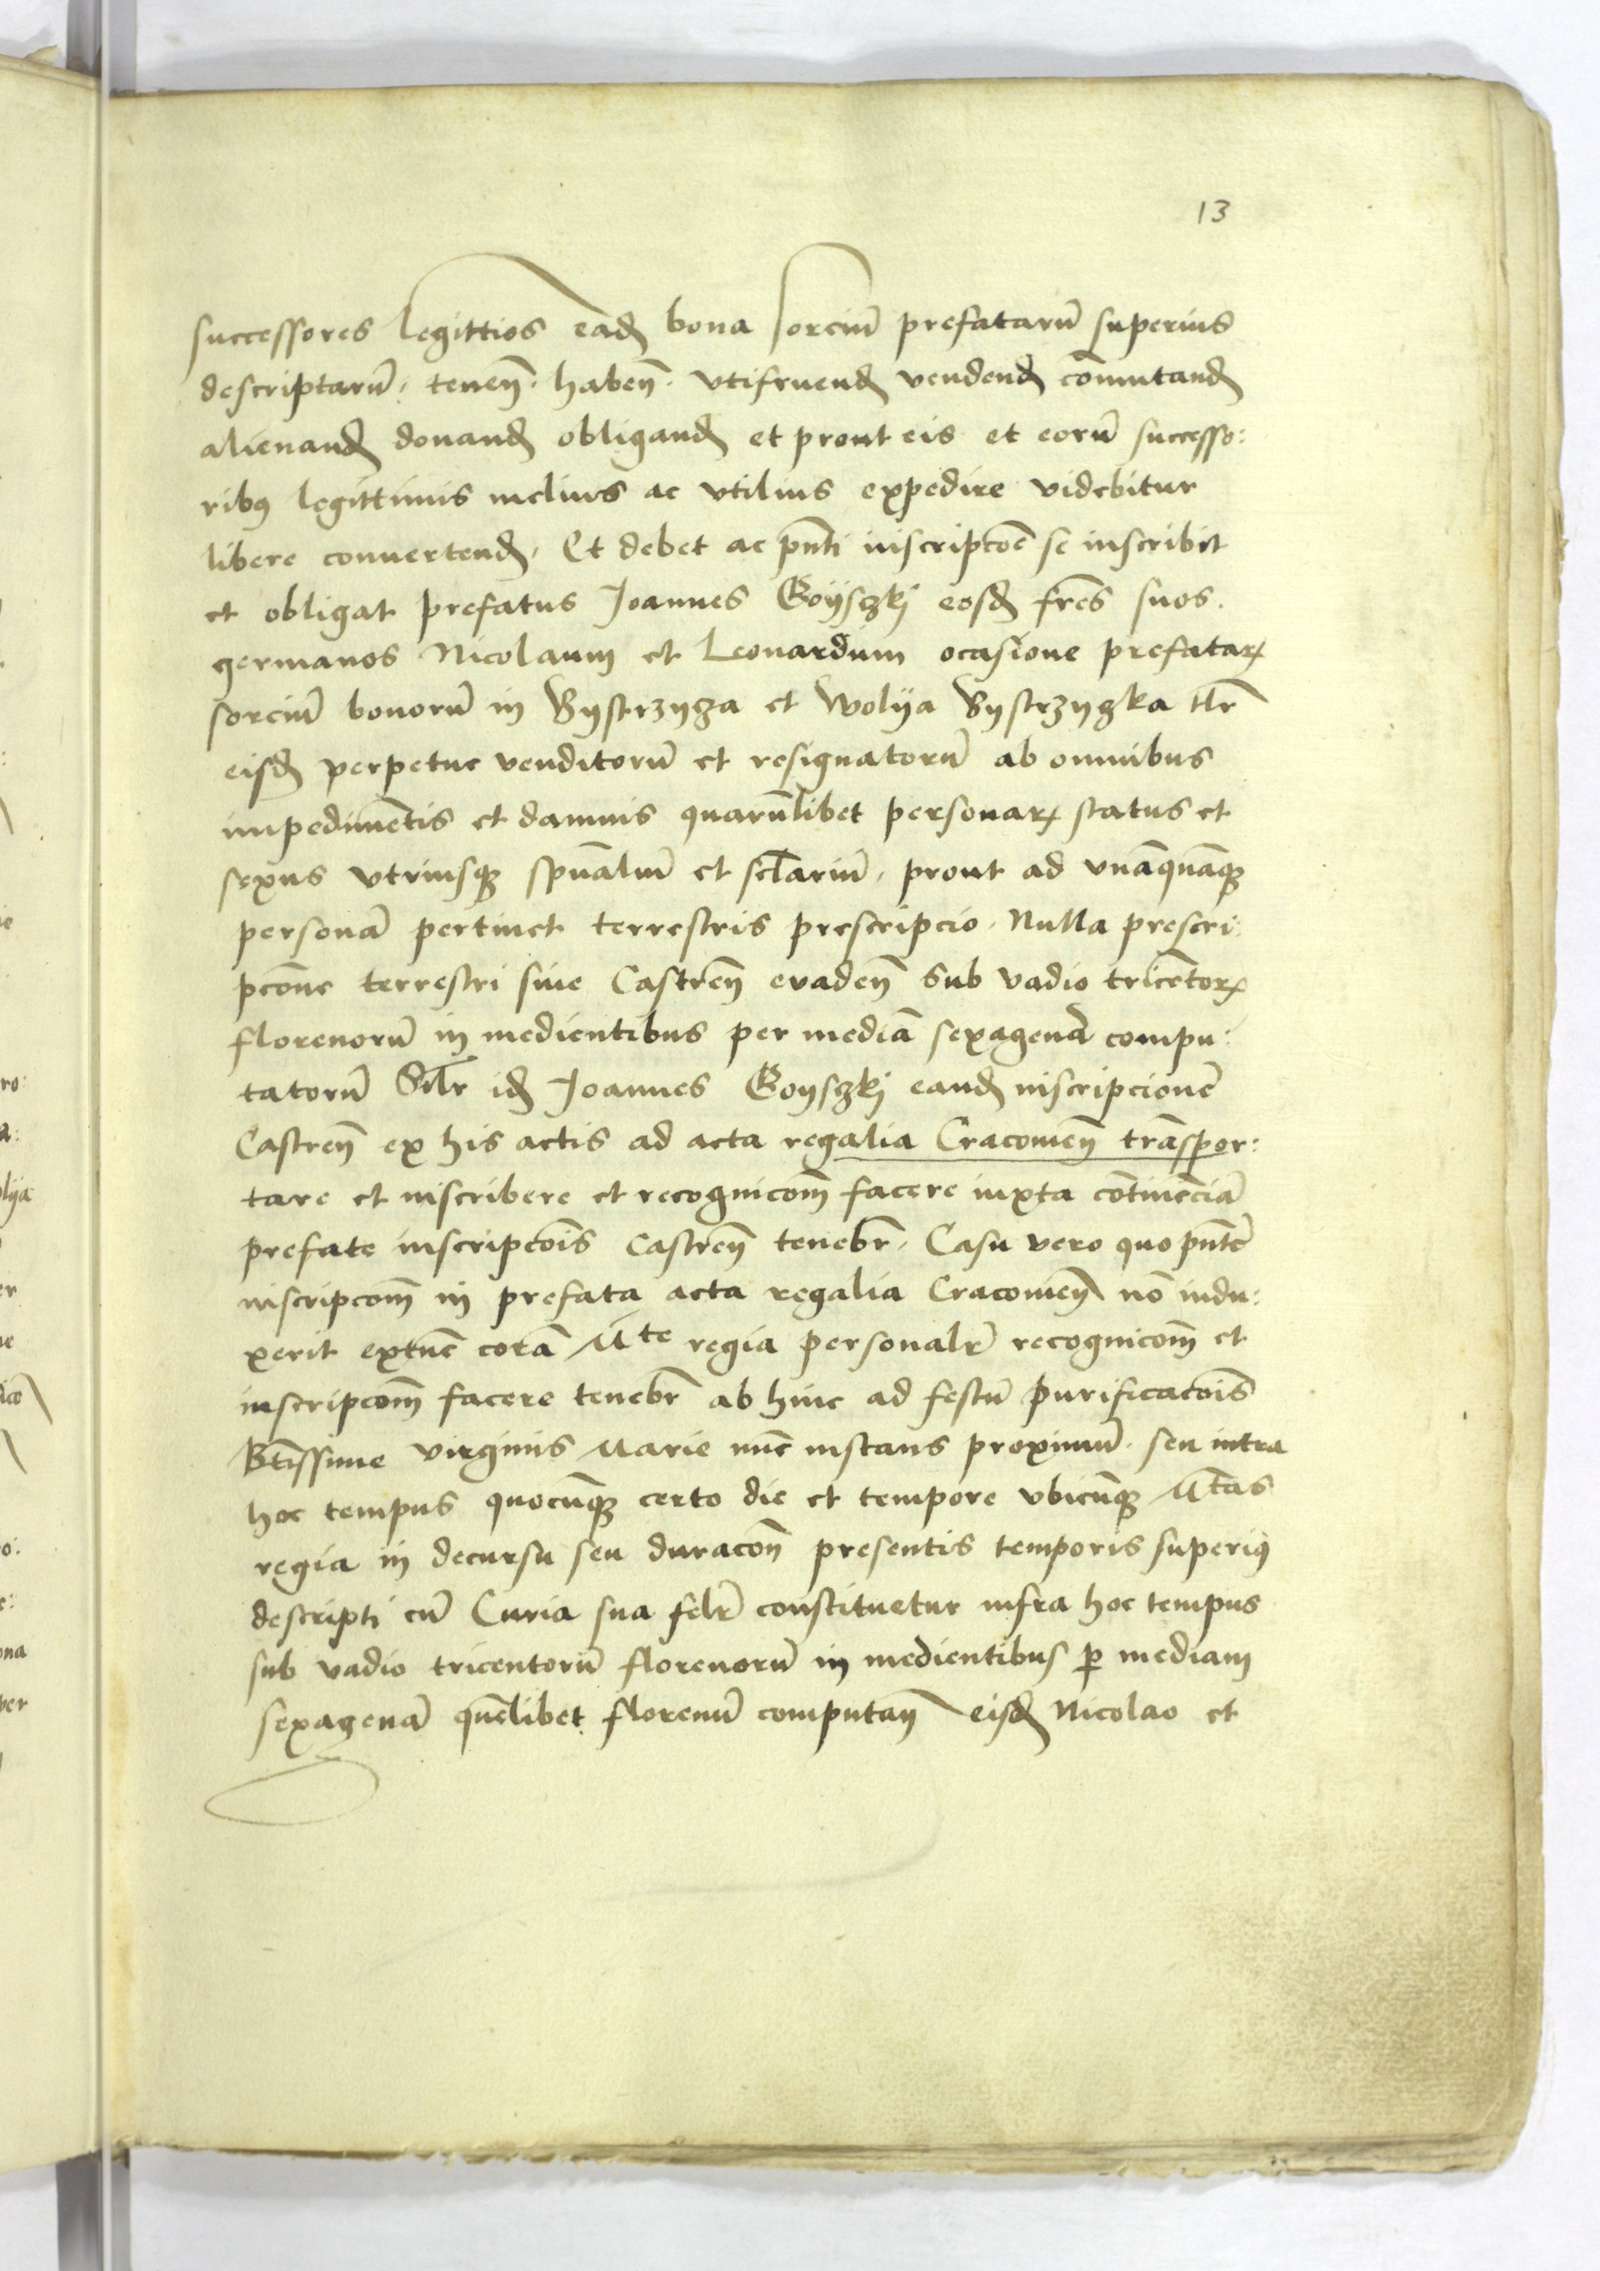 13
successores legittīos eađ bona sorciū prefatarū superius
descriptarū, tenen̄. haben̄. vtifruenđ vendenđ cōmutanđ
alienanđ donanđ obliganđ et prout eis et eorū successo:
ribꝯ legittimis melius ac vtilius expedire videbitur
libere conuertenđ, Et debet ac pn̄ti inscripcōe se inscribit
et obligat prefatus Joannes Goÿsczkj eosđ fr̄es suos.
germanos Nicolaum et Leonardum ocasione prefatarꝝ
sorciū bonorū in Bystrzycza et Wolÿa Bystrzyczka tlr̄
eisđ perpetue venditorū et resignatorū ab omnibus
impedimētis et damnis quarūlibet personarꝝ status et
sexus vtriusqꝫ spūaliū et seclariū, prout ad vnāquāqꝫ
personā pertinet terrestris prescripcio. Nulla prescri:
pcōne terrestri siue Castren̄ euaden̄ sub vadio tricētorꝝ
florenorū in medientibus per mediā sexagenā compu:
tatorū Silr̄ iđ Joannes Goysczkj eanđ inscripcionē
Castren̄ ex his actis ad acta regalia Cracouien̄ trāspor:
tare et inscribere et recognicōm facere iuxta cōtinēciā
prefate inscripcōis castren̄ tenebr̄. Casu vero quo pn̄tē
inscripcōm in prefata acta regalia Cracouien̄ nō indu:
xerit extūc corā Mte regia personalr̄ recognicōm et
inscripcōm facere tenebr̄ ab hinc ad festū purificacōis
Btīssime virginis Marie nūc instans proximū. seu intra
hoc tempus quocūqꝫ certo die et tempore vbicūqꝫ Mtas
regia in decursu seu duracōn presentis temporis superiꝯ
descripti cū Curia sua felr̄ constituetur infra hoc tempus
sub vadio tricentorū florenorū in medientibus ꝑ mediam
sexagenā quēlibet florenū computan̄ eisđ Nicolao et